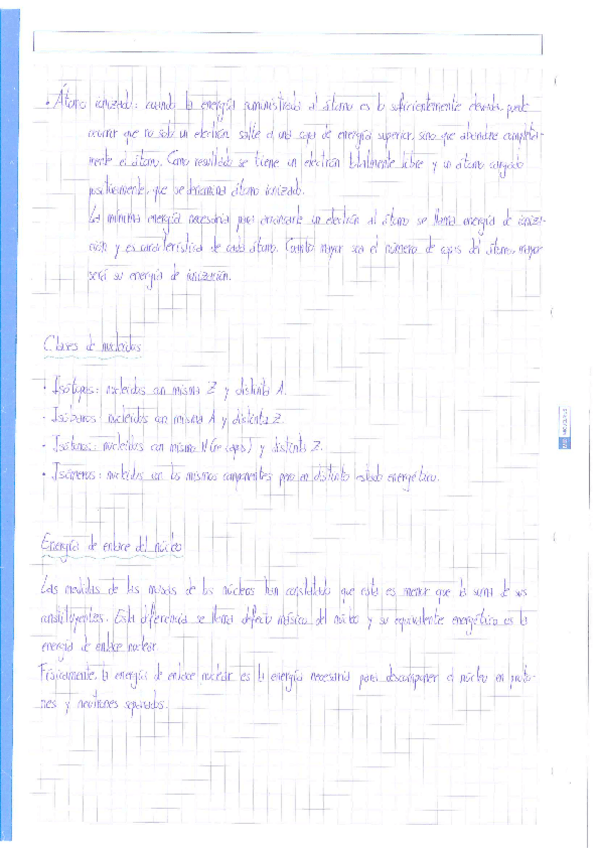 · Átomo ionizado: cuando la energía suministrada al átomo es lo suficientemente elevada, puede
ocurrir que no solo un electrón salte a una capa de energía superior, sino que abandone completa-
mente el átomo. Como resultado se tiene un electrón totalmente libre y un átomo cargado
positivamente, que se denomina átomo ionizado.
La mínima energía necesaria para arrancarle un electrón al átomo se llama energía de ioniza-
ción y es característica de cada átomo. Cuanto mayor sea el número de capas del átomo, mayor
será su energía de ionización.
Clases de nucleidos
· Isótopos: nucleidos con misma Z y distinta A.
· Isóbaros: nucleidos con misma A y distinta Z.
· Isótonos: nucleidos con mismo N y distinta Z.
· Isómeros: nucleidos con los mismos componentes pero en distinto estado energético.
Energía de enlace del núcleo
Las medidas de las masas de los núcleos han constatado que esta es menor que la suma de sus
constituyentes. Esta diferencia se llama defecto másico del núcleo y su equivalente energético es la
energía de enlace nuclear.
Físicamente, la energía de enlace nuclear es la energía necesaria para descomponer el núcleo en proto-
nes y neutrones separados.